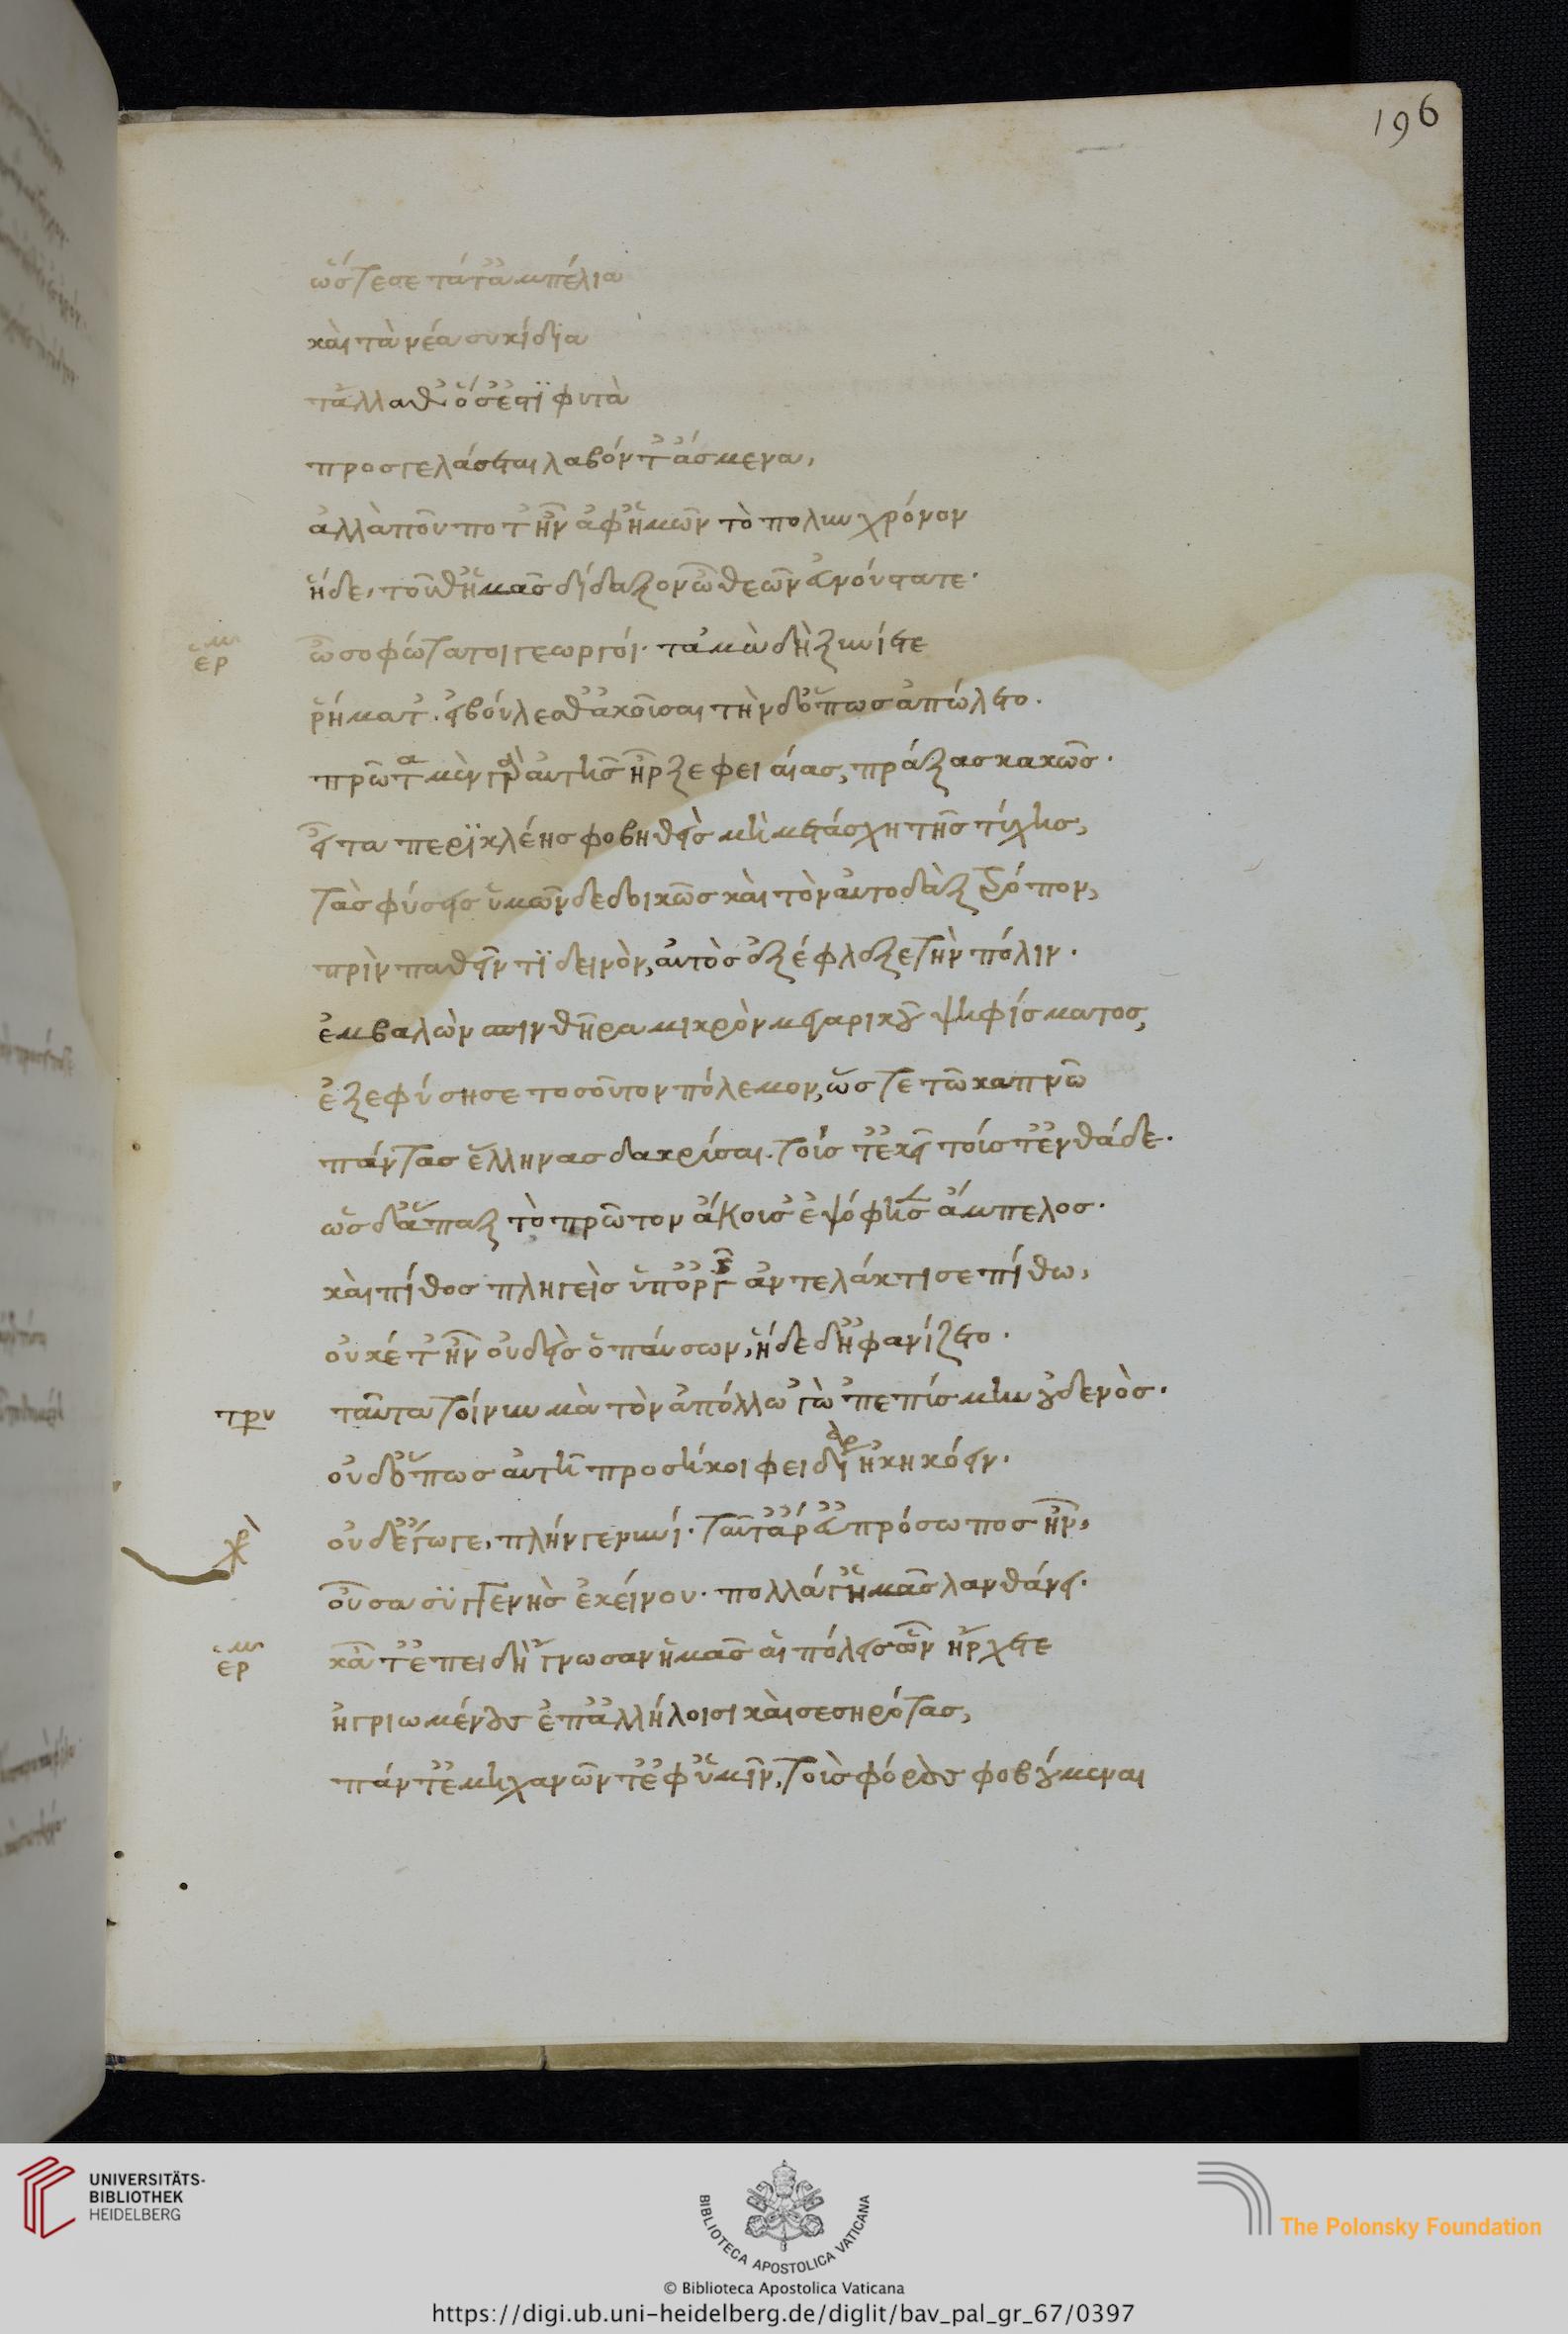 196
ὥστε σε τά τ' ἀμπέλια
καὶ τὰ νέα συκίδια
τἄλλα θ' ὅσ' ἐστὶ φυτὰ
προσγελάσεται λαβόντ' ἄσμενα,
ἀλλὰ ποῦ ποτ' ἦν ἀφ' ἡμῶν τὸ πολὺν χρόνον
ἥδε, τοῦθ' ἡμᾶς δίδαξον ὦ θεῶν εὐνούστατε.
ἑρμ ὦ σοφώτατοι γεωργοί. τἀμὰ δὴ ξυνίετε
ῥήματ'. εἰ βούλεσθ' ἀκοῦσαι τήνδ' ὅπως ἀπώλετο.
πρῶτα μὲν γὰρ αὐτῆς ἦρξε φειδίας, πράξας κακῶς.
εἶτα περικλέης φοβηθεὶς μὴ μετάσχῃ τῆς τύχης,
τὰς φύσεις ὑμῶν δεδοικὼς καὶ τὸν αὐτοδὰξ τρόπον,
πρὶν παθεῖν τι δεινὸν, αὐτὸς ἐξέφλεξε τὴν πόλιν.
ἐμβαλὼν σπινθῆρα μικρὸν μεγαρικοῦ ψηφίσματος,
ἐξεφύσησε τοσοῦτον πόλεμον, ὥστε τῶ καπνῶ
πάντας ἕλληνας δακρύσαι. τούς τ' ἐκεῖ τούς τ' ἐνθάδε.
ὡς δ' ἅπαξ τὸ πρῶτον ἄκουσ' ἐψόφησεν ἄμπελος.
καὶ πίθος πληγεὶς ὑπ' ὀργῆς ἀντελάκτισε πίθω,
οὐκέτ' ἦν οὐδεὶς ὁ παύσων, ἥδε δ' ἠφανίζετο.
τρυ ταῦτα τοίνυν μὰ τὸν ἀπόλλω 'γὼ 'πεπύσμην οὐδενὸς.
οὐδ' ὅπως αὐτῇ προσήκοι φειδίας ἠκηκόειν.
χο οὐδ' ἔγωγε, πλήν γε νυνί. ταῦτ' ἄρ' εὐπρόσωπος ἦν,
οὖσα συγγενὴς ἐκείνου. πολλά γ' ἡμᾶς λανθάνει.
ἑρμ κᾆτ' ἐπειδὴ 'γνωσαν ἡμᾶς αἱ πόλεις ὧν ἤρχετε
ἠγριωμένους ἐπ' ἀλλήλοισι καὶ σεσηρότας,
πάντ' ἐμηχανῶντ' ἐφ' ὑμῖν, τοὺς φόρους φοβούμεναι
UNIVERSITÄTS-
BIBLIOTHEK
HEIDELBERG
BIBLIOTECA APOSTOLICA VATICANA
© Biblioteca Apostolica Vaticana
The Polonsky Foundation
https://digi.ub.uni-heidelberg.de/diglit/bav_pal_gr_67/0397